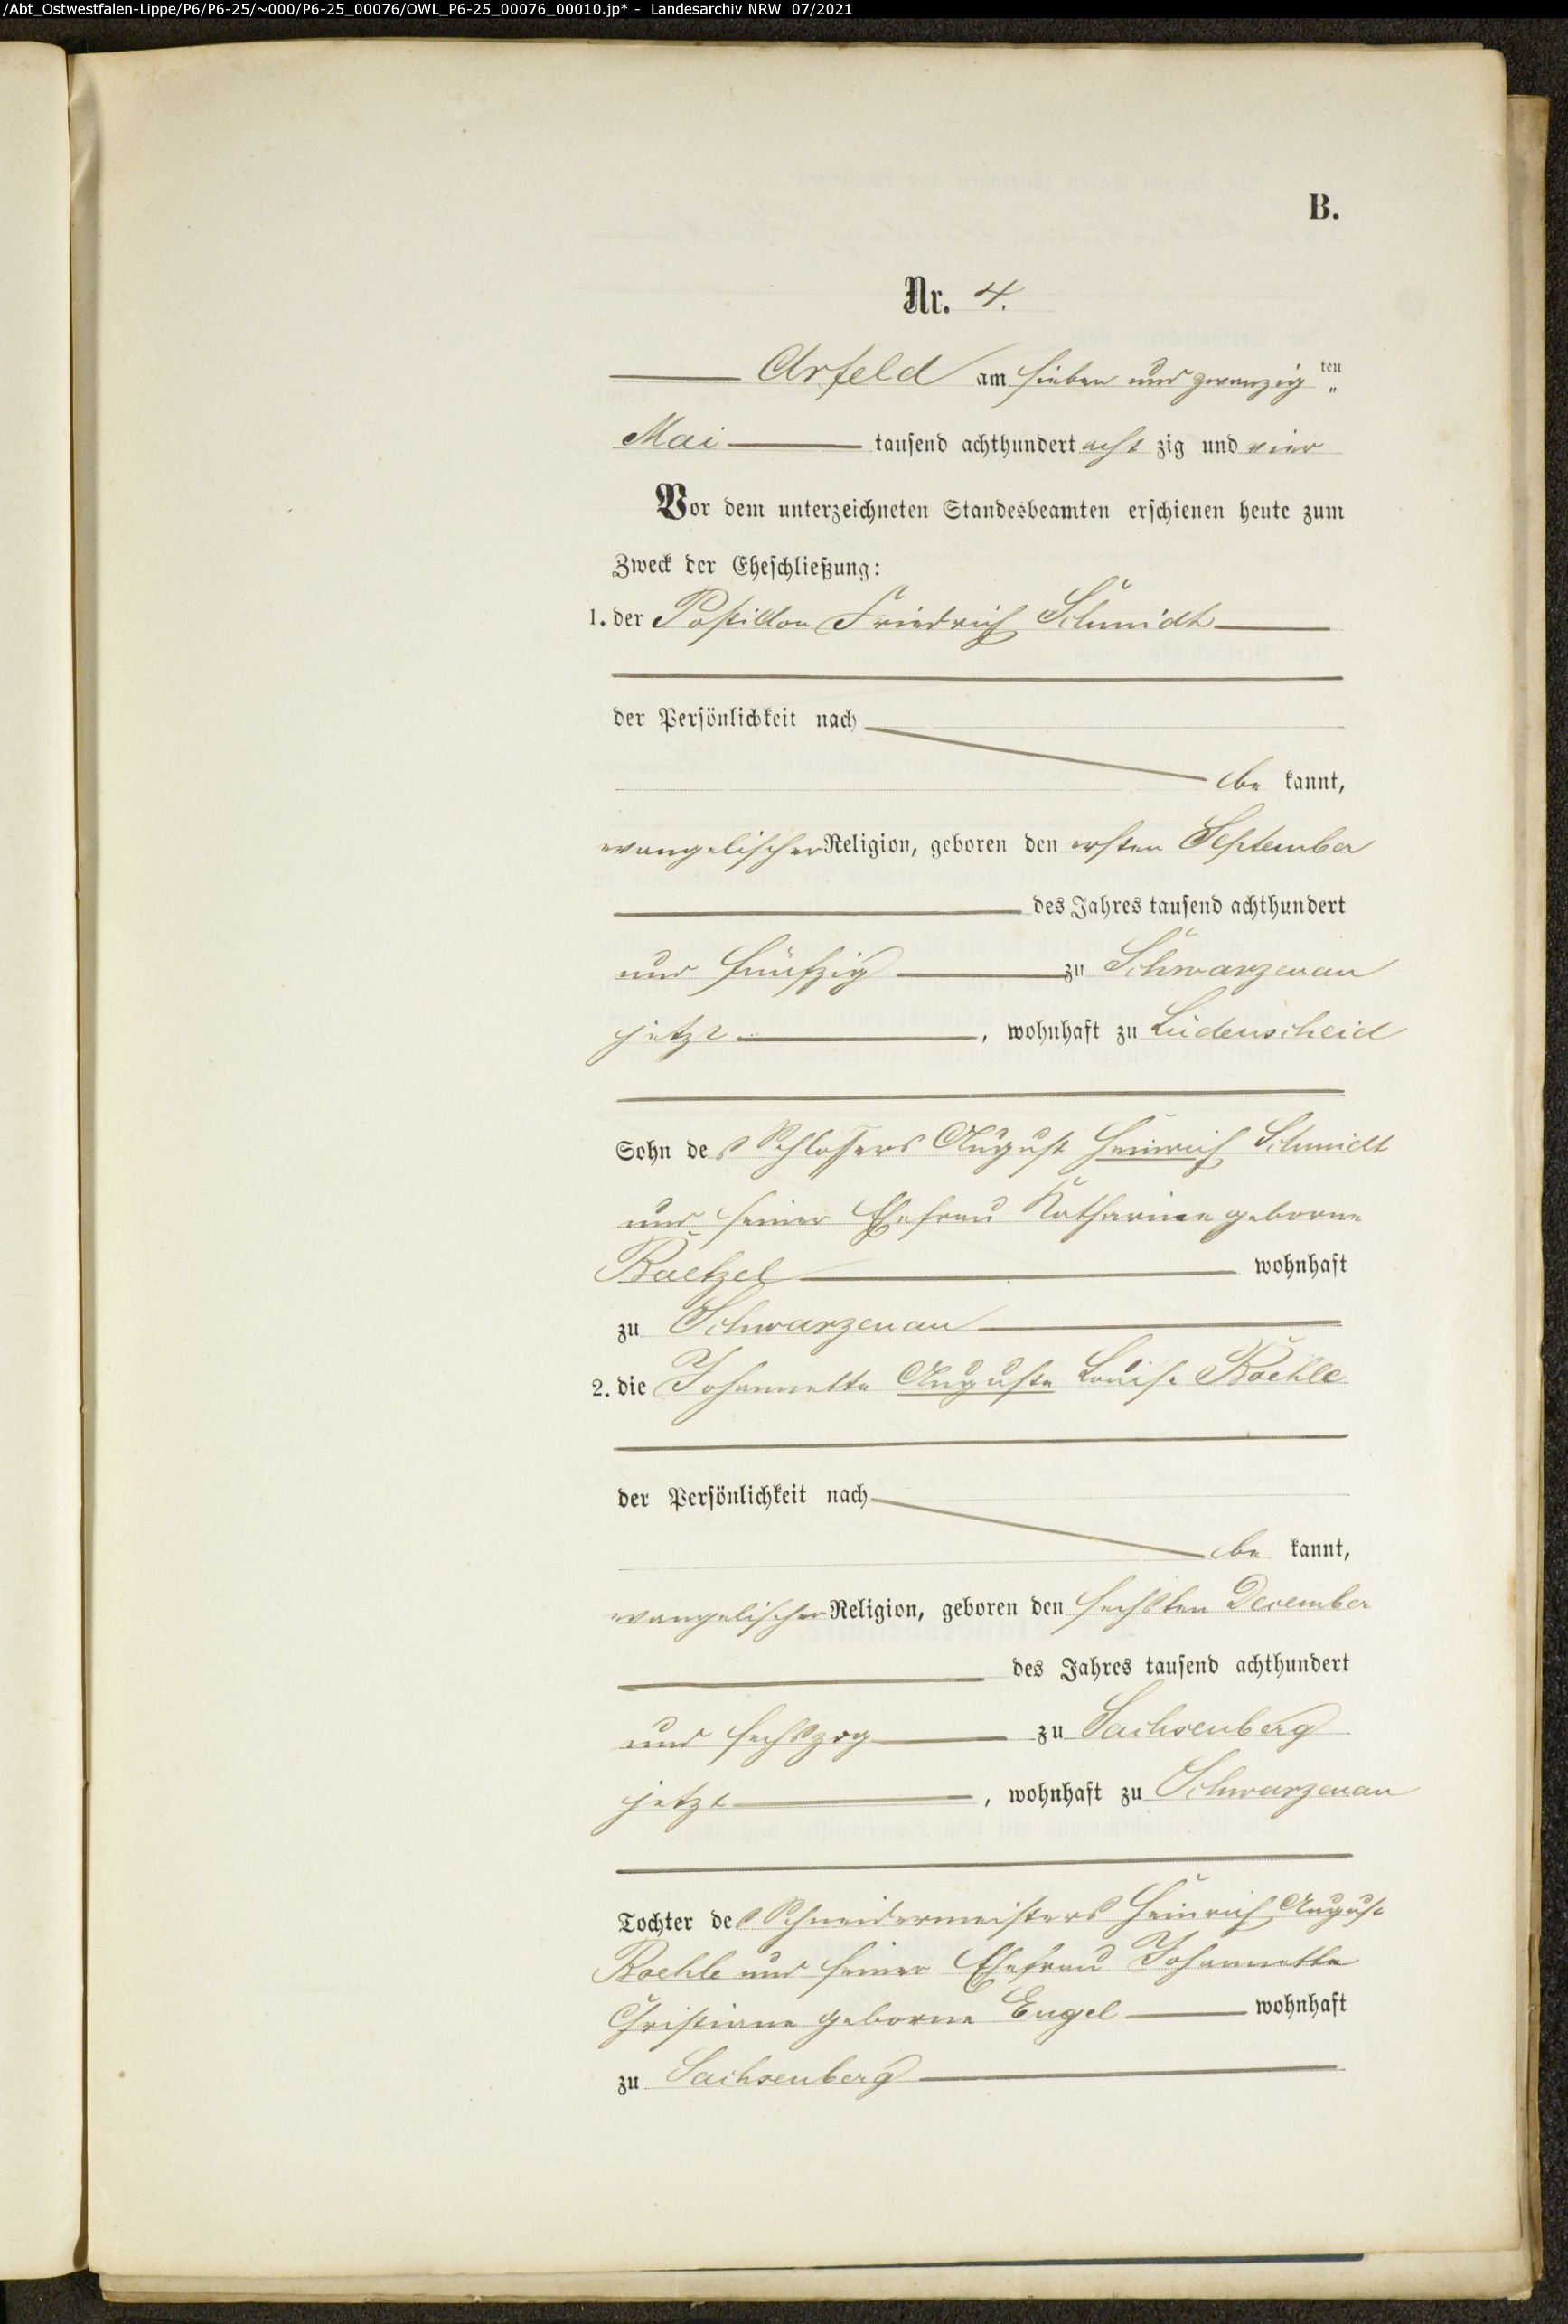 /Abt_Ostwestfalen-Lippe/P6/P6-25/~000/P6-25_00076/OWL_P6-25_00076_00010.jp* - Landesarchiv NRW 07/2021
B.
Nr. 4.
Arfeld am sieben und zwanzig ten "
Mai tausend achthundert acht zig und vier
Vor dem unterzeichneten Standesbeamten erschienen heute zum
Zweck der Eheschließung:
1. der Postillon Friedrich Schmidt
der Persönlichkeit nach
be kannt,
evangelischer Religion, geboren den ersten September
des Jahres tausend achthundert
und fünfzig zu Schwarzenau
jetzt , wohnhaft zu Lüdenscheid
Sohn des Schlossers August Heinrich Schmidt
und seiner Ehefrau Katharine geborne
Baetzel wohnhaft
zu Schwarzenau
2. die Johannette Auguste Louise Boehle
der Persönlichkeit nach
be kannt,
evangelischer Religion, geboren den sechsten December
des Jahres tausend achthundert
und sechszig zu Sachsenberg
jetzt , wohnhaft zu Schwarzenau
Tochter des Schneidermeisters Heinrich August
Boehle und seiner Ehefrau Johannette
Christiane geborne Engel wohnhaft
zu Sachsenberg